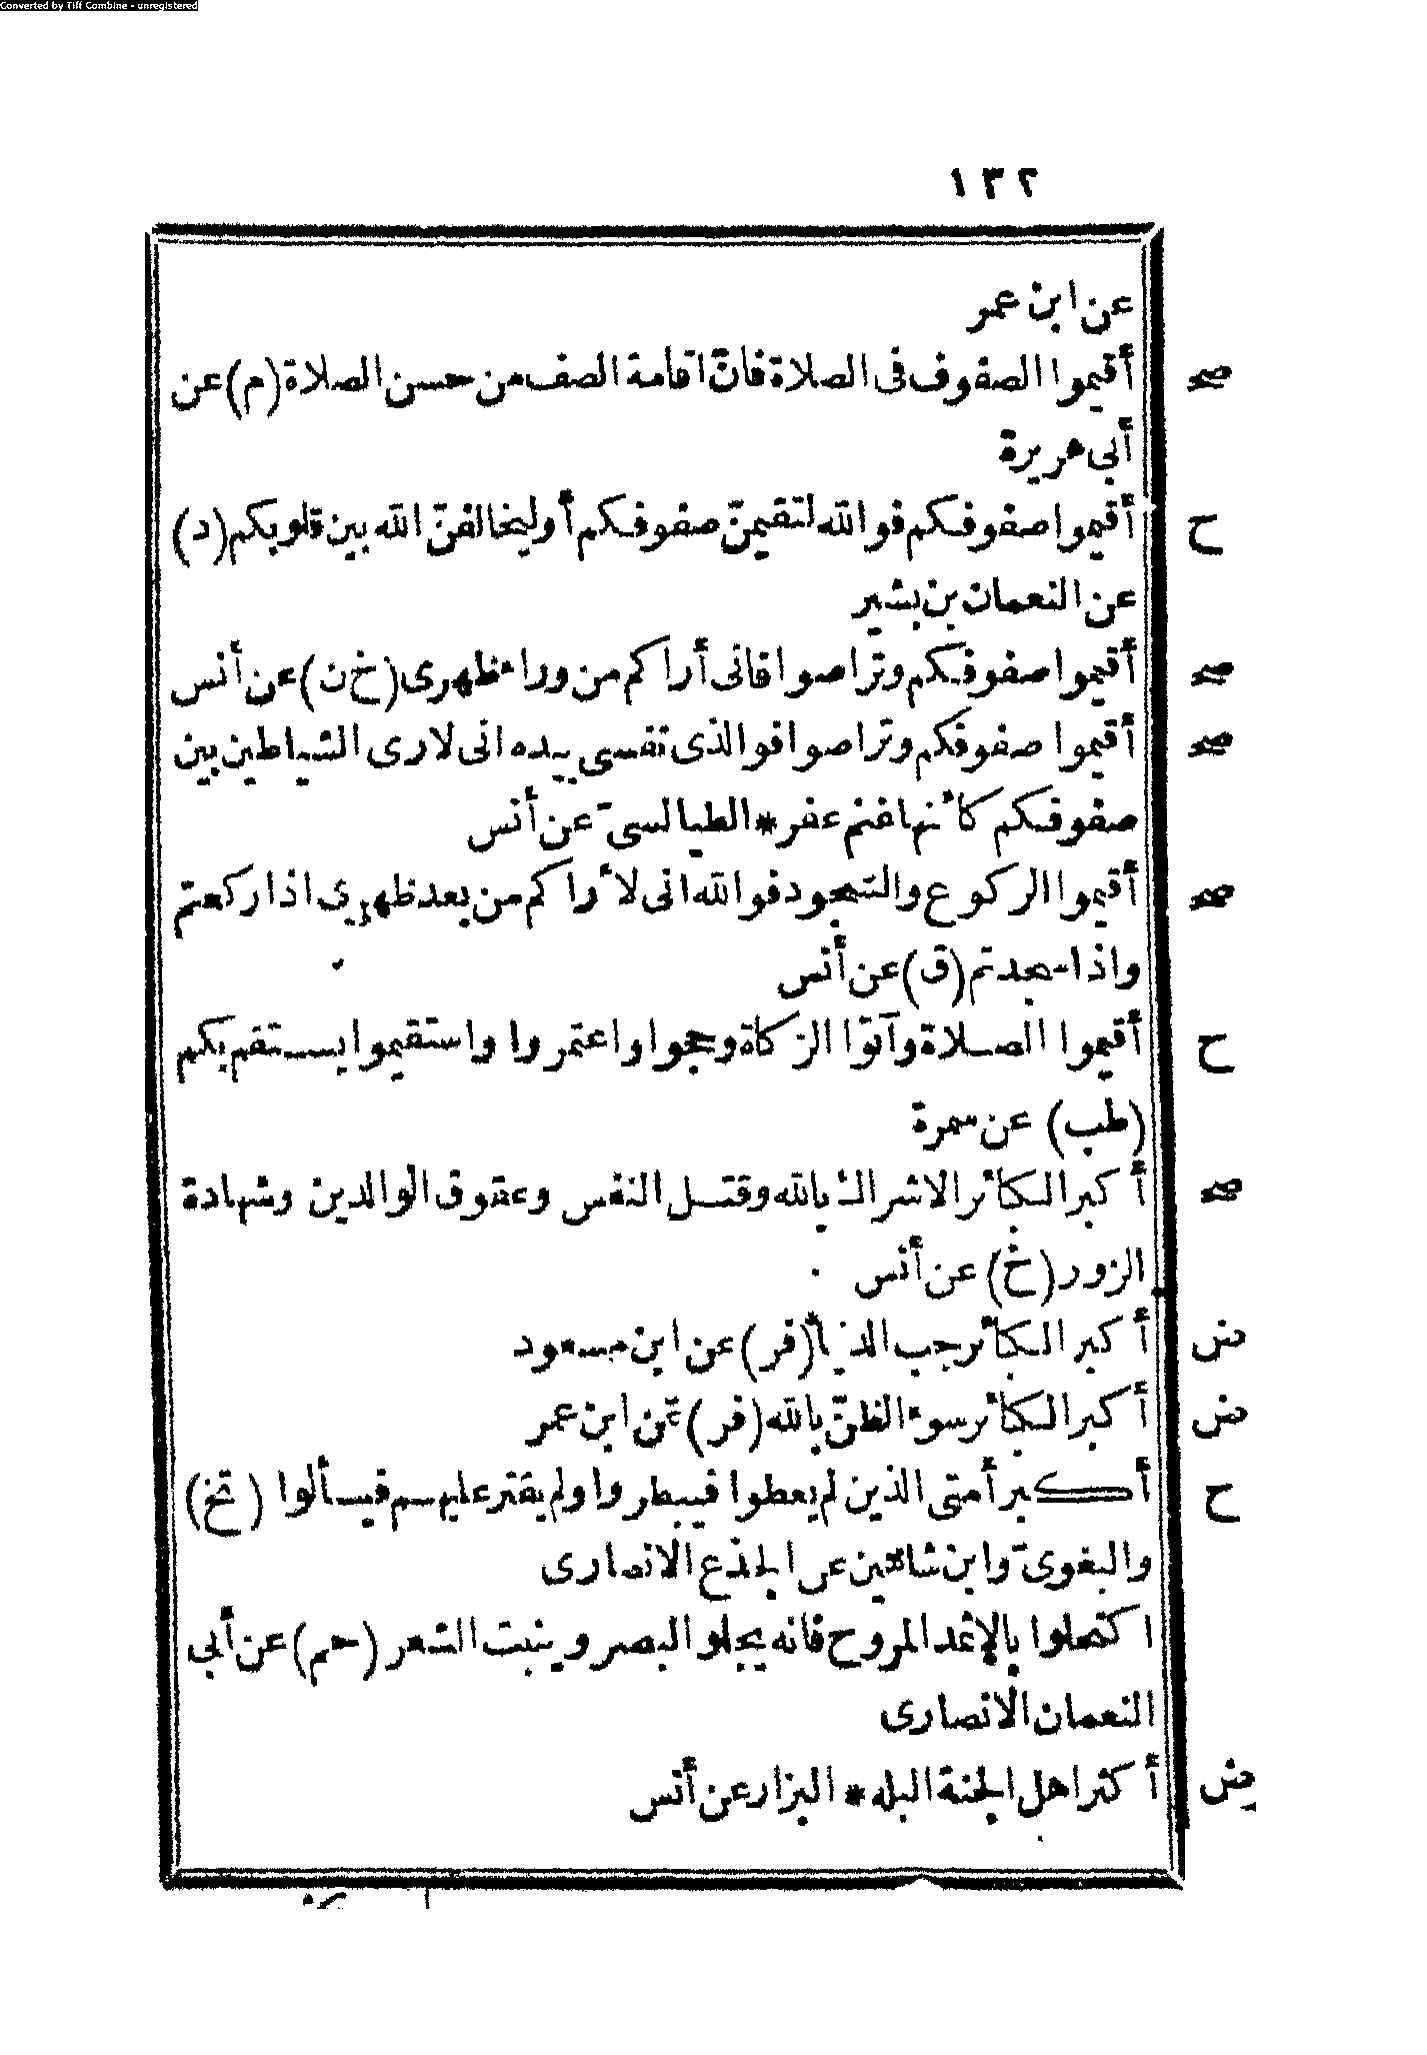 Converted by Tiff Combine - unregistered
١٣٢
عن ابن عمر
صح أقيموا الصفوف فى الصلاة فانّ اقامة الصف من حسن الصلاة (م) عن
أبى هريرة
ح أقيموا صفوفكم فوالله لتقيمنّ صفوفكم أوليخالفنّ الله بين قلوبكم (د)
عن النعمان بن بشير
صح أقيموا صفوفكم وتراصوا فانى أراكم من وراء ظهرى (خ ن) عن أنس
صح أقيموا صفوفكم وتراصوا فوالذى نفسى بيده انى لارى الشياطين بين
صفوفكم كأنها غنم عفر * الطيالسىّ عن أنس
صح أقيموا الركوع والسجود فوالله انى لأراكم من بعد ظهرى اذا ركعتم
واذا سجدتم (ق) عن أنس
ح أقيموا الصلاة وآتوا الزكاة وحجوا واعتمروا واستقيموا يستقم بكم
(طب) عن سمرة
صح أكبر الكبائر الاشراك بالله وقتل النفس وعقوق الوالدين وشهادة
الزور (خ) عن أنس
ض أكبر الكبائر حب الدنيا (فر) عن ابن مسعود
ض أكبر الكبائر سوء الظنّ بالله (فر) عن ابن عمر
ح أكبر أمتى الذين لم يعطوا فيبطروا ولم يقتر عليهم فيسألوا (تخ)
والبغوىّ وابن شاهين عن الجذع الانصارى
اكتحلوا بالإثمد المروح فانه يجلو البصر وينبت الشعر (حم) عن أبى
النعمان الانصارى
ض أكثر اهل الجنة البله * البزار عن أنس